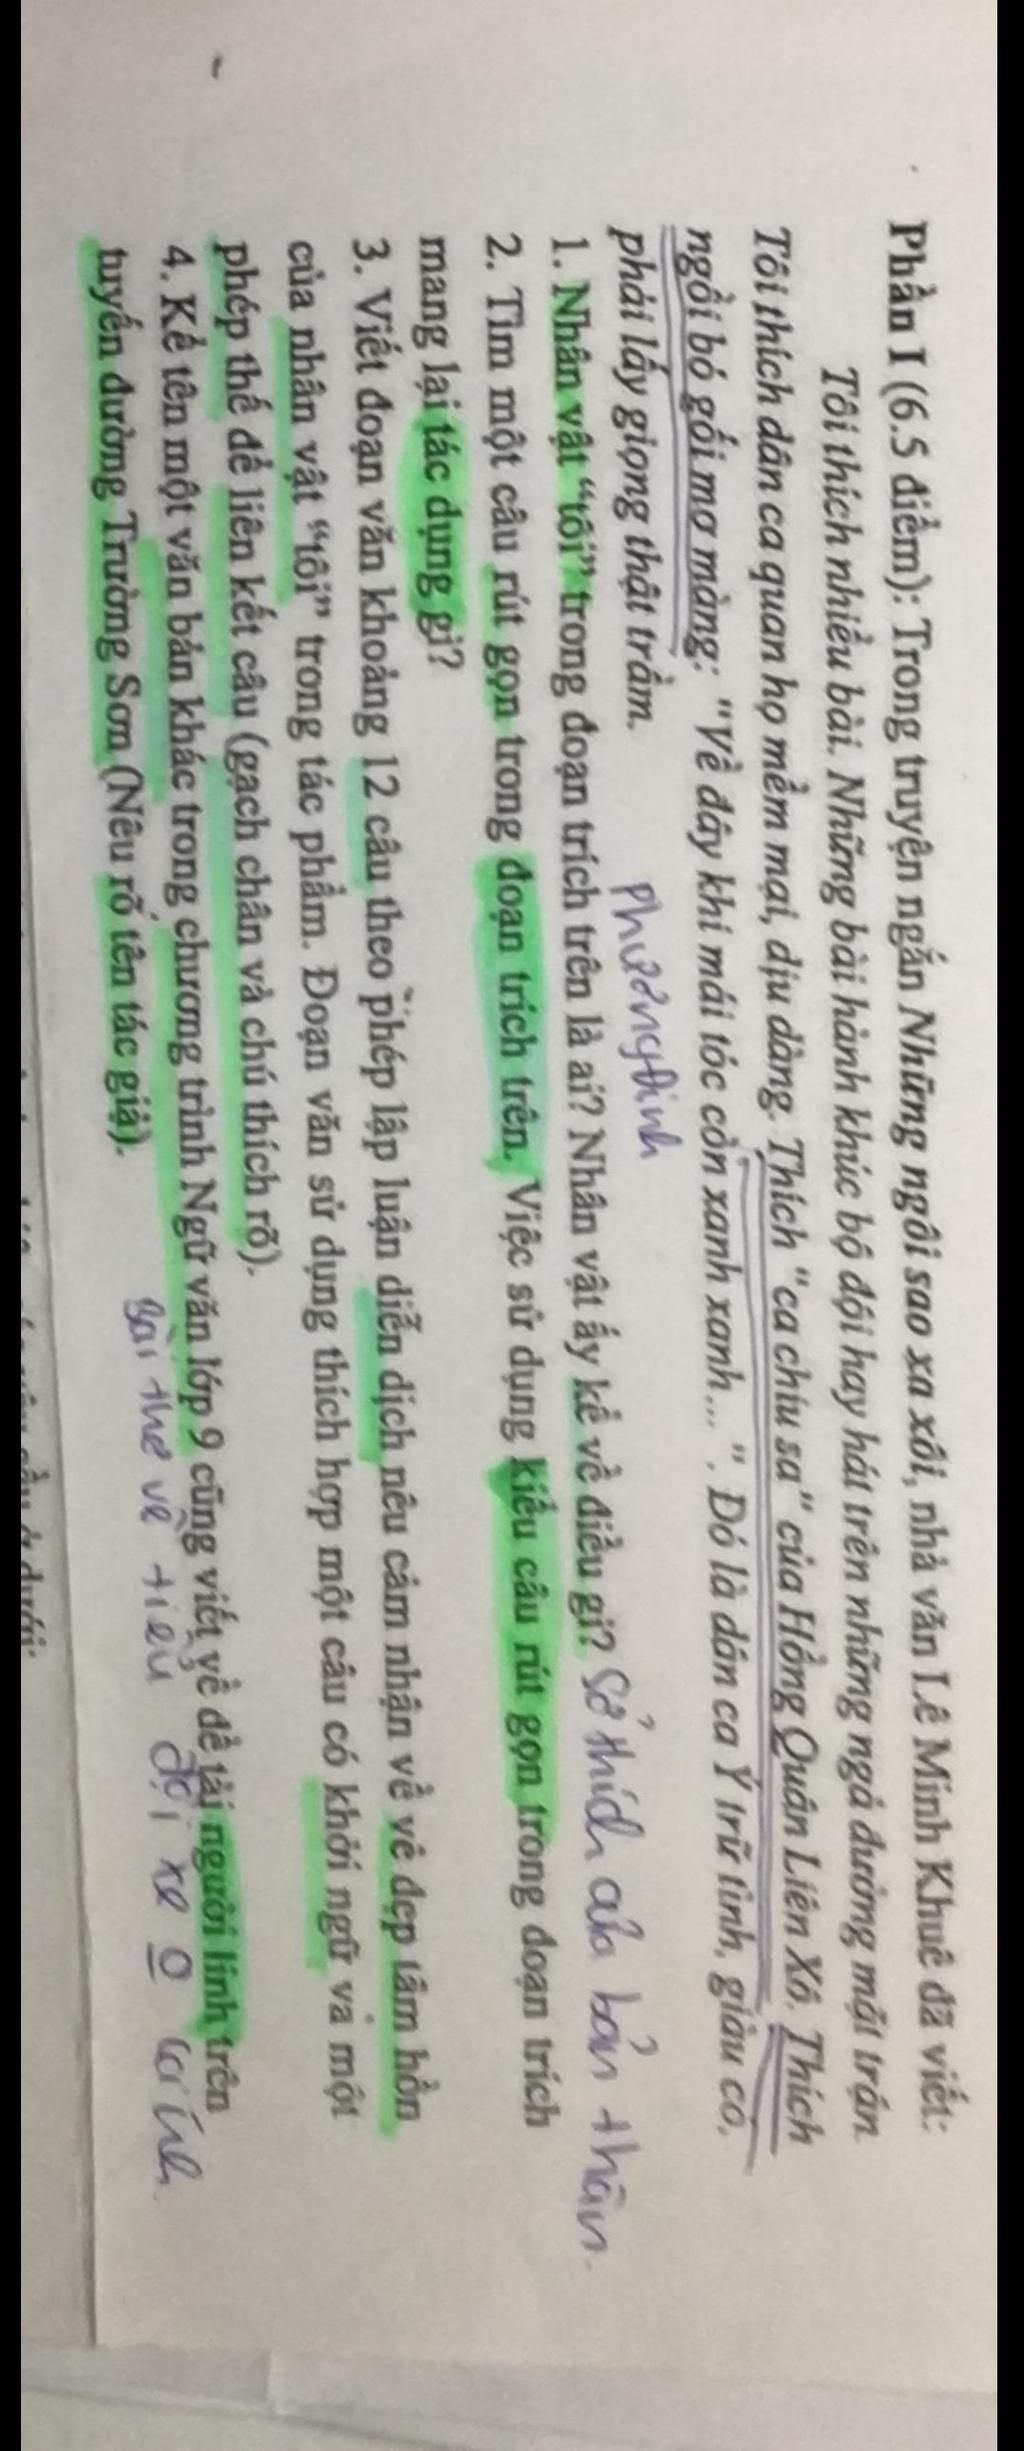 Phần I (6.5 điểm): Trong truyện ngắn Những ngôi sao xa xôi, nhà văn Lê Minh Khuê đã viết:
Tôi thích nhiều bài. Những bài hành khúc bộ đội hay hát trên những ngả đường mặt trận.
Tôi thích dân ca quan họ mềm mại, dịu dàng. Thích "ca chiu sa" của Hồng Quân Liên Xô. Thích
ngồi bó gối mơ màng: "Về đây khi mái tóc còn xanh xanh...". Đó là dân ca Ý trữ tình, giàu có,
phải lấy giọng thật trầm.
Phương Định
1. Nhân vật "tôi" trong đoạn trích trên là ai? Nhân vật ấy kể về điều gì? Sở thích của bản thân.
2. Tìm một câu rút gọn trong đoạn trích trên. Việc sử dụng kiểu câu rút gọn trong đoạn trích
mang lại tác dụng gì?
3. Viết đoạn văn khoảng 12 câu theo phép lập luận diễn dịch nêu cảm nhận về vẻ đẹp tâm hồn
của nhân vật "tôi" trong tác phẩm. Đoạn văn sử dụng thích hợp một câu có khởi ngữ và một
phép thế để liên kết câu (gạch chân và chú thích rõ).
4. Kể tên một văn bản khác trong chương trình Ngữ văn lớp 9 cũng viết về đề tài người lính trên
tuyến đường Trường Sơn (Nêu rõ tên tác giả).
Bài thơ về tiểu đội xe 0 kính